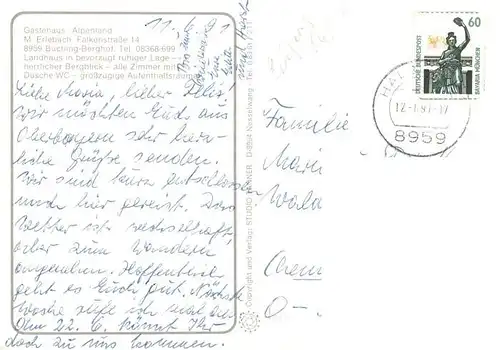 Gästehaus Alpenland
M. Erlebach Falkenstraße 14
8959 Buching-Berghof, Tel 08368-699
Landhaus in bevorzugt ruhiger Lage -
herrlicher Bergblick - alle Zimmer mit
Dusche WC - großzügige Aufenthaltsräume
11.6.91
Liebe Maria, lieber Felix!
Wir möchten Euch aus
Oberbayern sehr herz-
liche Grüße senden.
Wir sind kurz entschlossen
noch hier gereist. Das
Wetter ist wechselhaft,
aber zum Wandern
angenehm. Hoffentlich
geht es Euch gut. Nächste
Woche rufe ich mal an.
Am 22. 6. könnt Ihr
doch zu uns kommen.
Eure
und Horst
Copyright und Verlag: STUDIO TANNER · D-8964 Nesselwang
60
DEUTSCHE BUNDESPOST
BAVARIA MÜNCHEN
HAL
12.-6.91-17
8959
Familie
Mari
Wala
Chem
O-